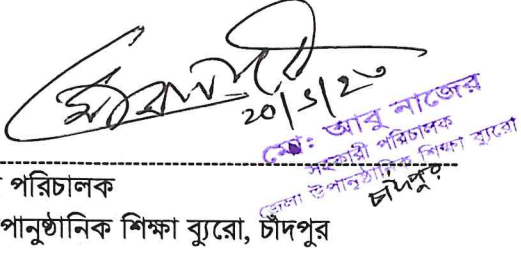 20/5/20
মো: আবু নাজের
সহকারী পরিচালক
জেলা উপানুষ্ঠানিক শিক্ষা ব্যুরো
চাঁদপুর
পরিচালক
পানুষ্ঠানিক শিক্ষা ব্যুরো, চাঁদপুর